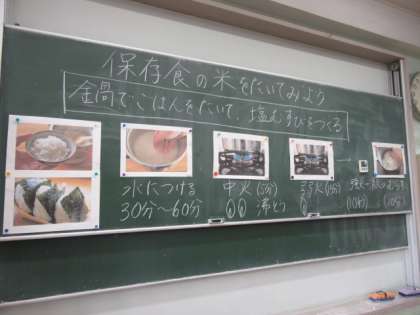 保存食の米をたいてみよう
鍋でごはんをたいて、塩むすびをつくる
水につける
30分～60分
中火(5分)
沸とう
弱火(15分)
(10秒)
(10分)